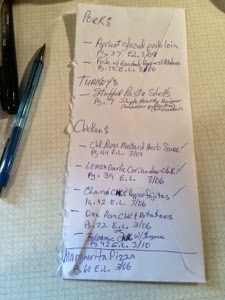 Pork:
- Apricot glazed porkloin
Pg. 27 E.L. 3/09
- Pork w/ Roasted Peppers & Potatoes
Pg. 75 E.L. 3/06
Turkey:
- Stuffed Pasta Shells
Pg. 9
Chicken:
- Mustard Herb Sauce
E.L.
- Lemon Garlic Coriander Chk
Pg. 39 E.L. 3/06
- Charred Chk Pepper Fajitas
Pg. 42 E.L. 3/06
- One Pan Chk & Potatoes
Pg. 72 E.L. 3/06
- Balsamic Chk w/
Pg 42 E.L. 3/10
Margherita Pizza
Pg. 60 E.L. 3/06